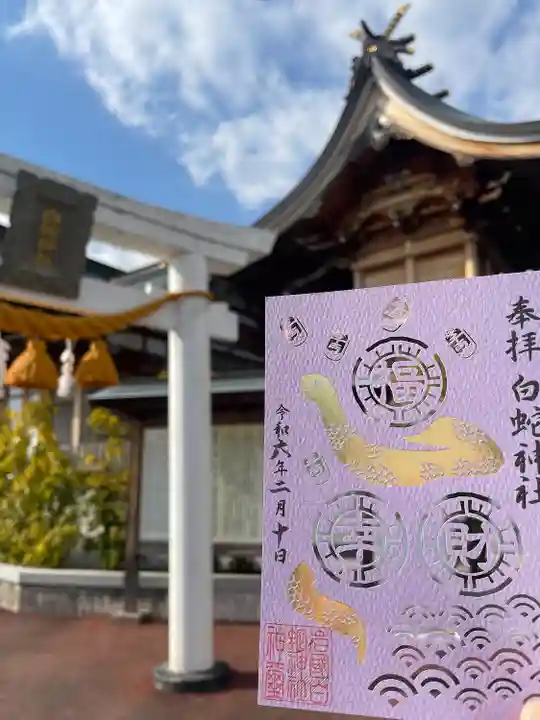 奉拝 白蛇神社
福
幸
財
令和六年二月十日
岩國白
蛇神社
神璽